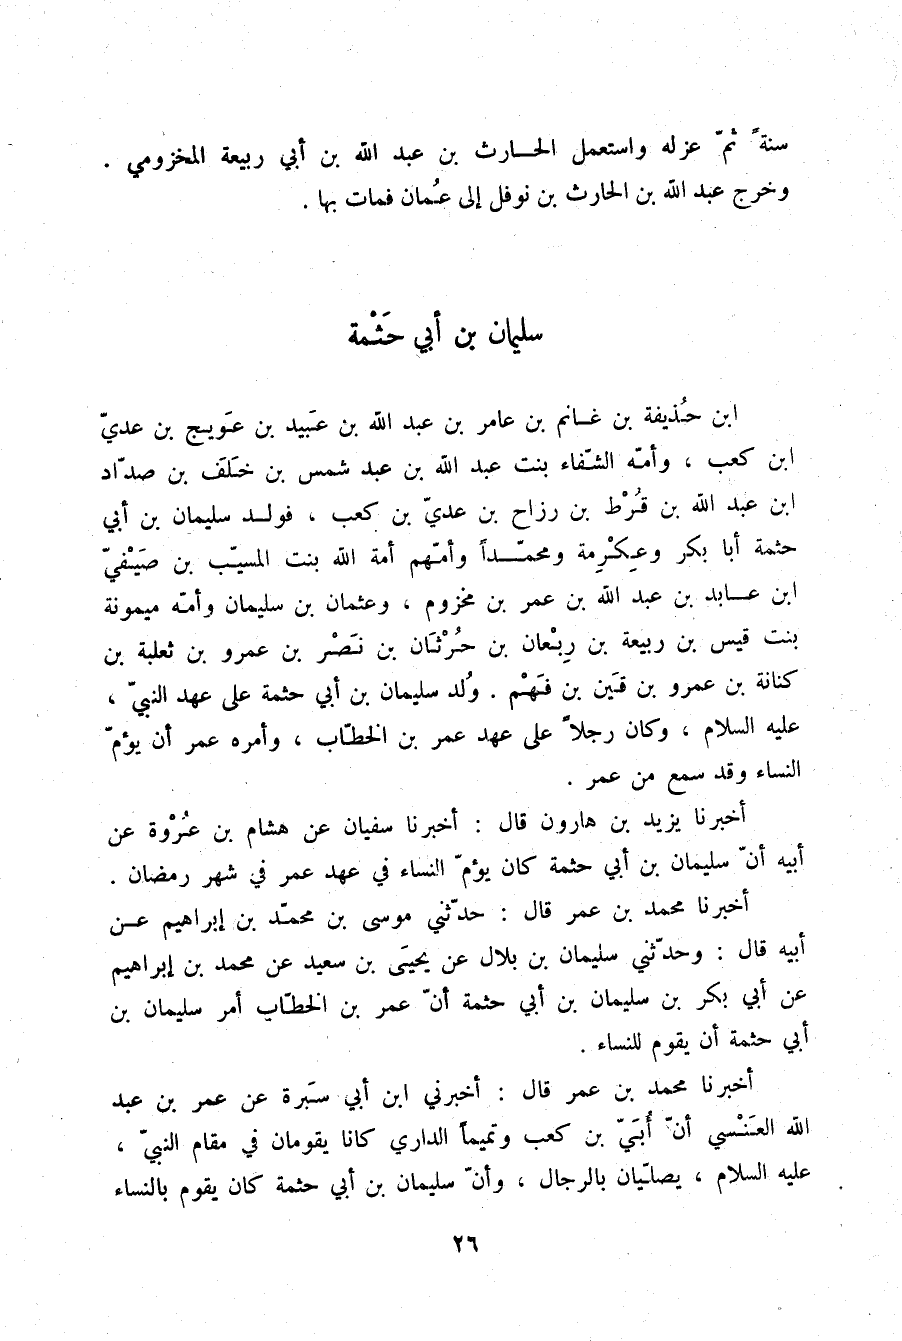 سنةً ثمّ عزله واستعمل الحارث بن عبد الله بن أبي ربيعة المخزومي .
وخرج عبد الله بن الحارث بن نوفل إلى عُمان فمات بها .
سليمان بن أبي حَثْمة
ابن حُذيفة بن غانم بن عامر بن عبد الله بن عَبيد بن عَويج بن عديّ
ابن كعب ، وأمّه الشّفاء بنت عبد الله بن عبد شمس بن خَلَف بن صدّاد
ابن عبد الله بن قُرْط بن رزاح بن عديّ بن كعب ، فولد سليمان بن أبي
حثمة أبا بكر وعِكْرِمة ومحمّداً وأمّهم أمة الله بنت المسيّب بن صَيْفيّ
ابن عابد بن عبد الله بن عمر بن مخزوم ، وعثمان بن سليمان وأمّه ميمونة
بنت قيس بن ربيعة بن رِبْعان بن حُرْثان بن نَصْر بن عمرو بن ثعلبة بن
كنانة بن عمرو بن قَين بن فَهْم . وُلد سليمان بن أبي حثمة على عهد النبيّ ،
عليه السلام ، وكان رجلاً على عهد عمر بن الخطّاب ، وأمره عمر أن يؤمّ
النساء وقد سمع من عمر .
أخبرنا يزيد بن هارون قال : أخبرنا سفيان عن هشام بن عُرْوة عن
أبيه أنّ سليمان بن أبي حثمة كان يؤمّ النساء في عهد عمر في شهر رمضان .
أخبرنا محمد بن عمر قال : حدّثني موسى بن محمّد بن إبراهيم عن
أبيه قال : وحدّثني سليمان بن بلال عن يحيَى بن سعيد عن محمد بن إبراهيم
عن أبي بكر بن سليمان بن أبي حثمة أنّ عمر بن الخطّاب أمر سليمان بن
أبي حثمة أن يقوم للنساء .
أخبرنا محمد بن عمر قال : أخبرني ابن أبي سَبرة عن عمر بن عبد
الله العَنْسي أنّ أُبَيّ بن كعب وتميماً الداري كانا يقومان في مقام النبيّ ،
عليه السلام ، يصلّيان بالرجال ، وأنّ سليمان بن أبي حثمة كان يقوم بالنساء
٢٦